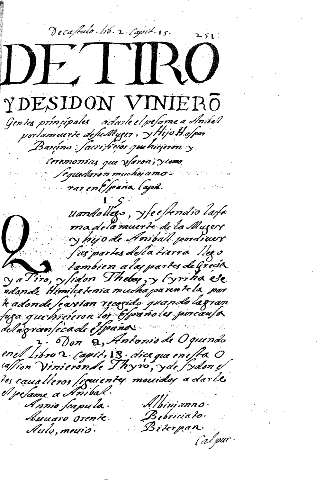 De castulo. lib. 2. Capit. 15. 251
DE TIRO
Y DE SIDON VINIERŌ
Gentes principales a darle el pesame a Anibal
por la muerte de su Muger, y Hijo Haspar
Barcino: sacrificios que hicieron y
ceremonias que usaron; y como
se quedaron muchos a mo-
rar en España. Capit.
15
Quando llego, y se estendio la fa
ma de la muerte de la Muger
y hijo de Anibal por diver
sas partes de la tierra llego
tambien a las partes de Grecia
y a Tiro, y Sidon
adonde Himilce tenia mucha parentela por
te adonde se avian recogido quando la gran
que hicieron los Españoles por causa
de la gran seca de España.
Don Antonio de Oquendo
en el libro 2. Capit. 13. dice que en esta O
casion vinieron de Thyro, y de Sydon
los cavalleros siguientes movidos a darle
el pesame a Anibal.
Annio scapula. Albinianno.
Auuaro orente. Bebriciato.
Aulo, mevio. Biterpan
Calpur.